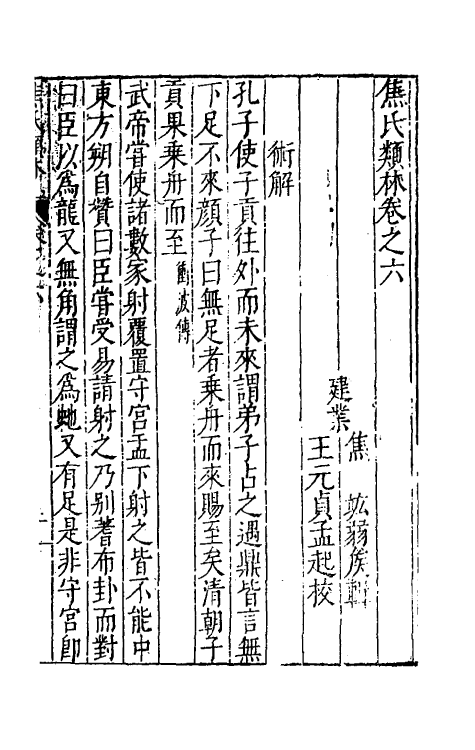 焦氏類林卷之六
建業
焦　竑弱侯輯
王元貞孟起校
術解
孔子使子貢往外而未來謂弟子占之遇鼎皆言無
下足不來顏子曰無足者乘舟而來賜至矣清朝子
貢果乘舟而至衝波傳
武帝甞使諸數家射覆置守宮盂下射之皆不能中
東方朔自贊曰臣甞受易請射之乃別蓍布卦而對
曰臣以爲龍又無角謂之爲虵又有足是非守宮卽